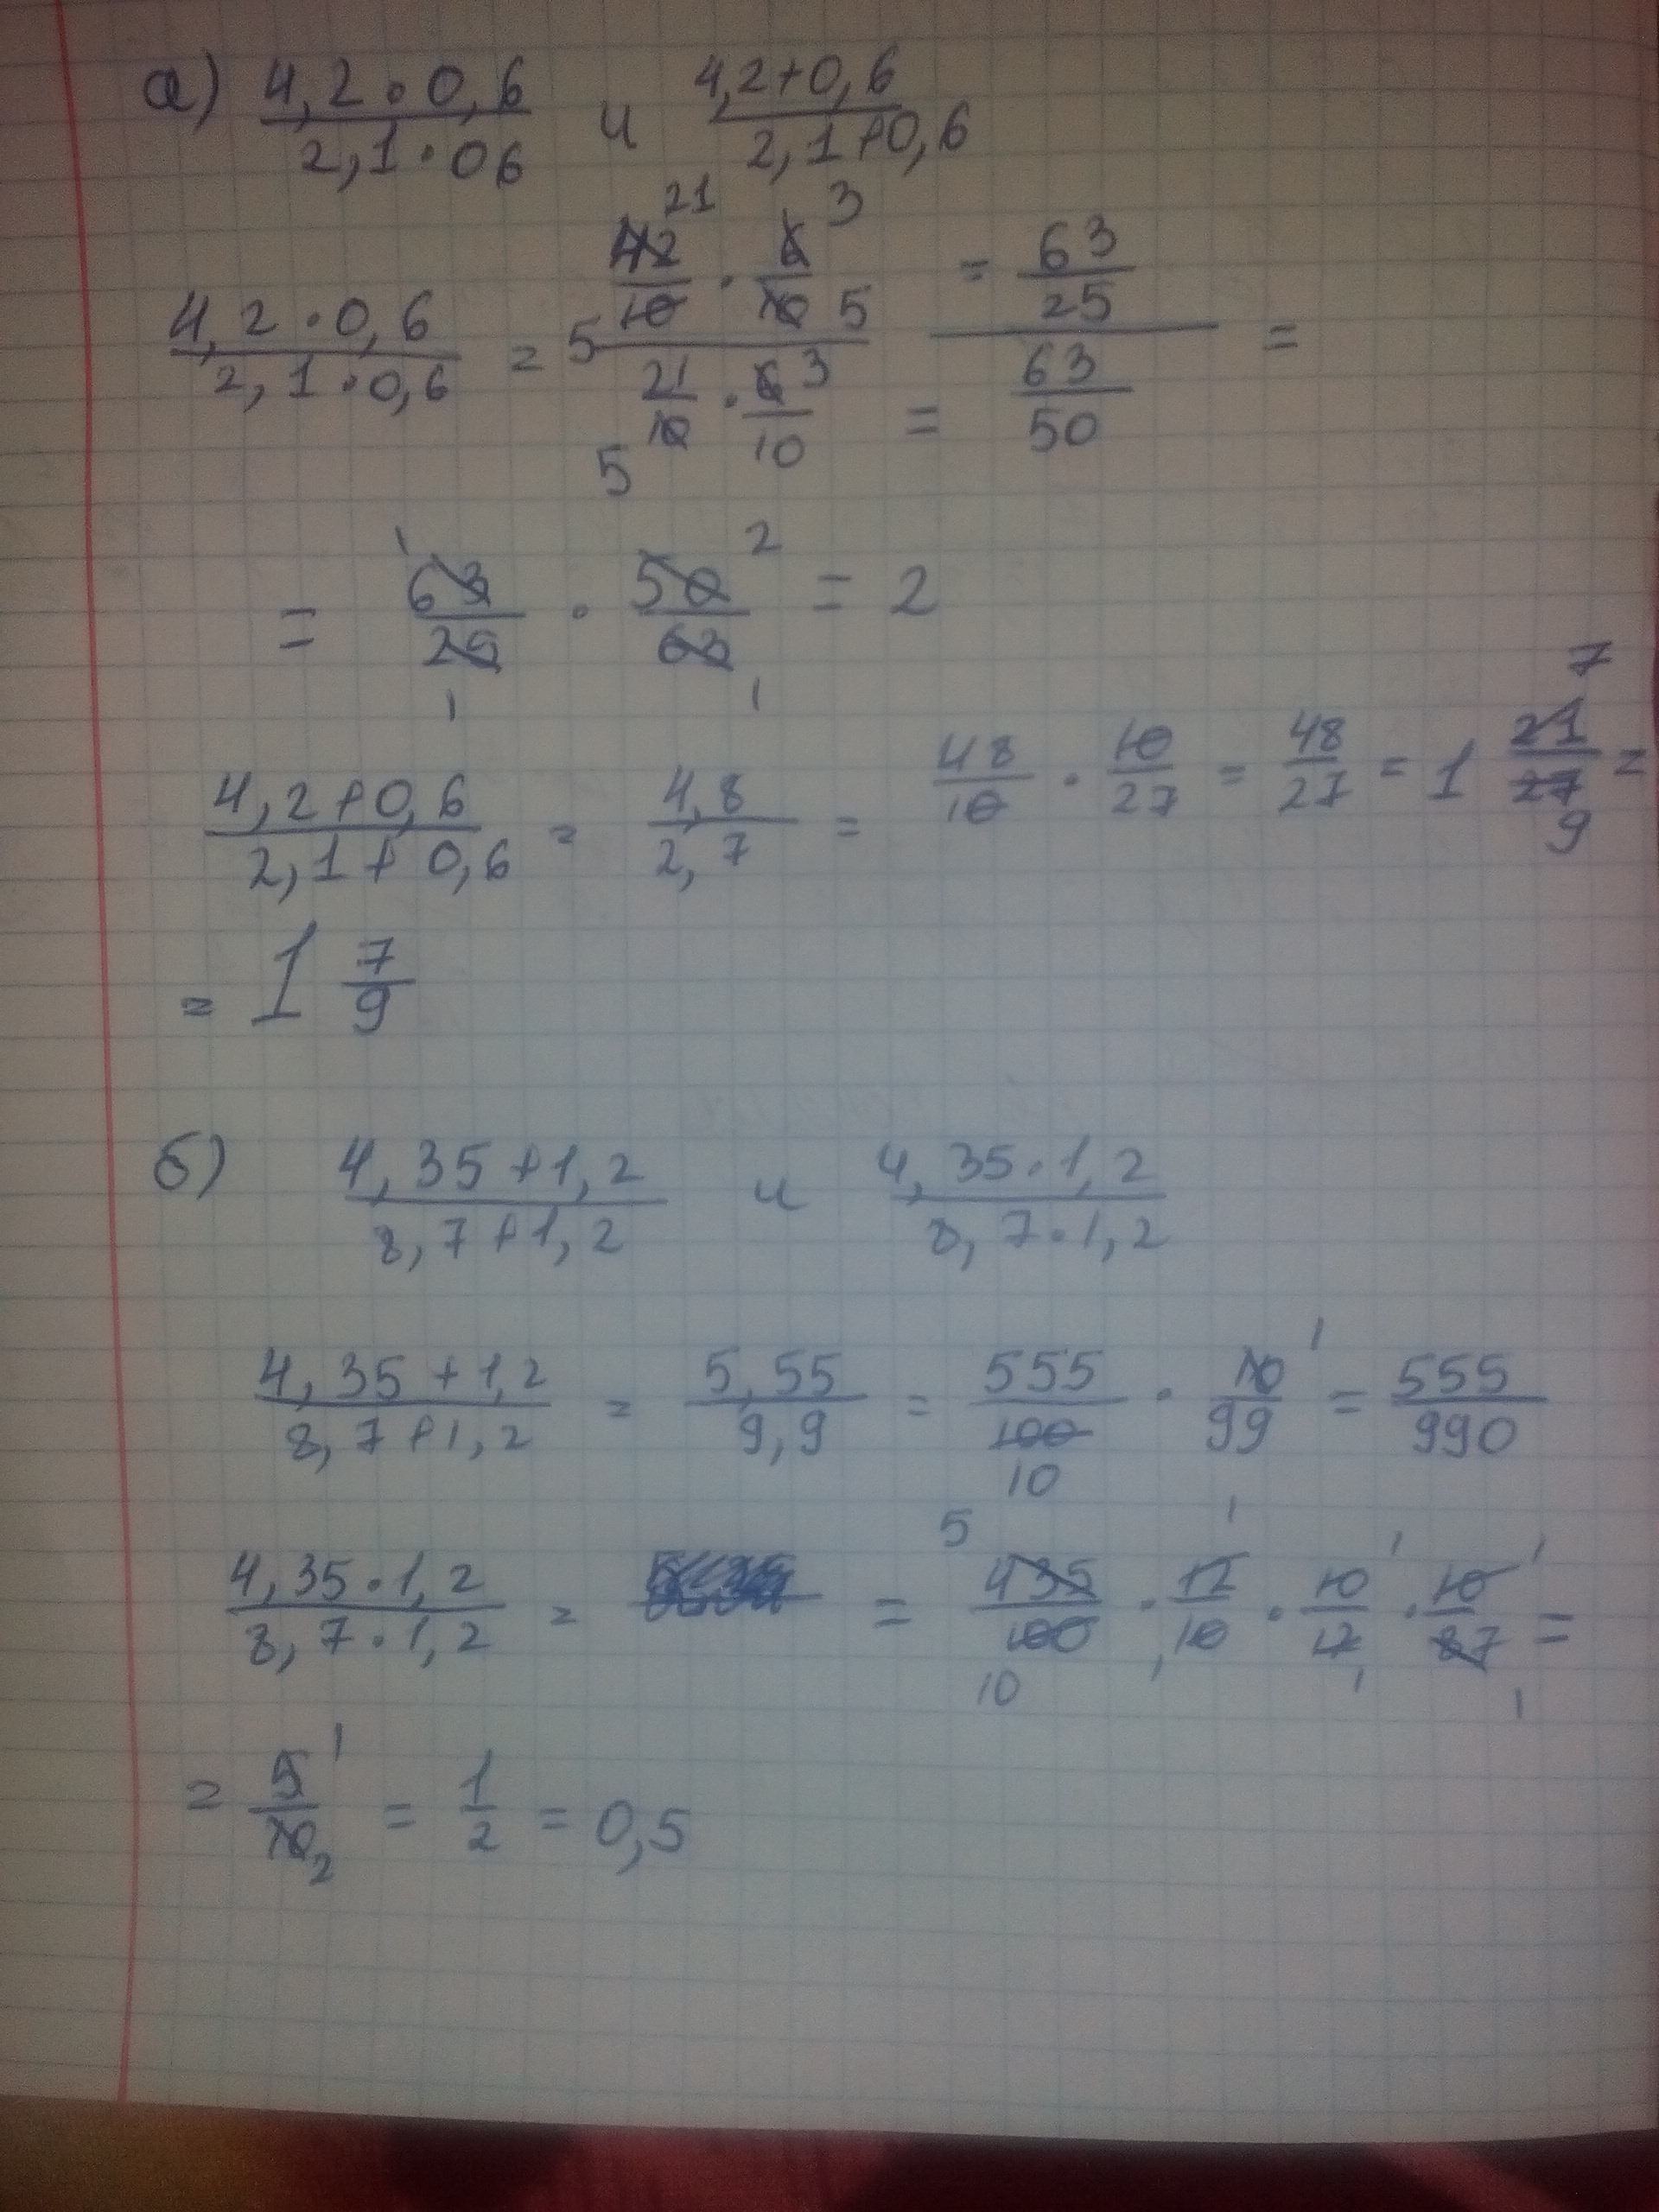 а) 4,2·0,6/2,1·06 и 4,2+0,6/2,1+0,6
4,2·0,6/2,1·0,6 = (42/10 · 6/10)/(21/10 · 6/10) = (63/25)/(63/50) =
= 63/25 · 50/63 = 2
4,2+0,6/2,1+0,6 = 4,8/2,7 = 48/10 · 10/27 = 48/27 = 1 21/27 =
= 1 7/9
б) 4,35+1,2/8,7+1,2 и 4,35·1,2/8,7·1,2
4,35+1,2/8,7+1,2 = 5,55/9,9 = 555/100 · 10/99 = 555/990
4,35·1,2/8,7·1,2 = = 435/100 · 12/10 · 10/12 · 10/87 =
= 5/10 = 1/2 = 0,5